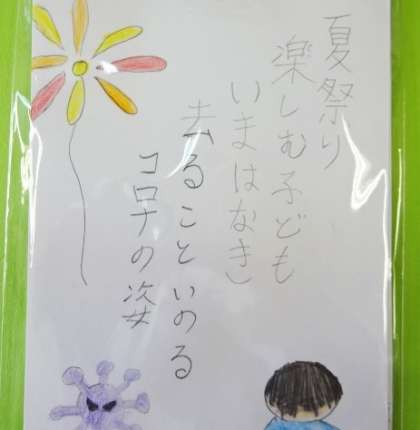 夏祭り
楽しむ子ども
いまはなき
去ることいのる
コロナの姿